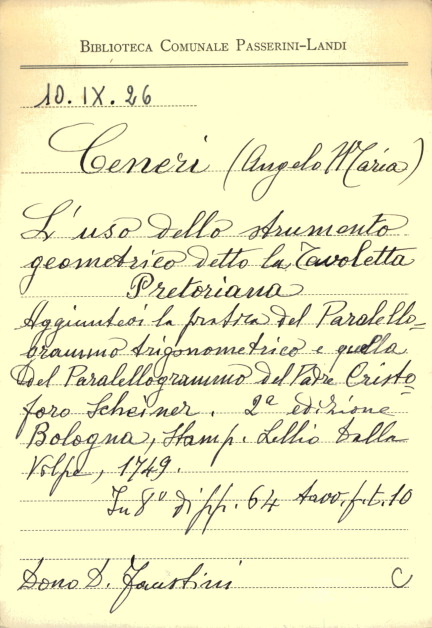 BIBLIOTECA COMUNALE PASSERINI-LANDI
10. IX. 26
Ceneri (Angelo Maria)
L'uso dello strumento
geometrico detto la Tavoletta
Pretoriana
Aggiuntevi la pratica del Paralello=
grammo trigonometrico e quella
del Paralellogrammo del Padre Cristo=
foro Scheiner. 2ª edizione
Bologna, Stamp. Lellio Dalla
Volpe, 1749.
In 8º di pp. 64 tavv. f. t. 10
Dono D. Faustini C